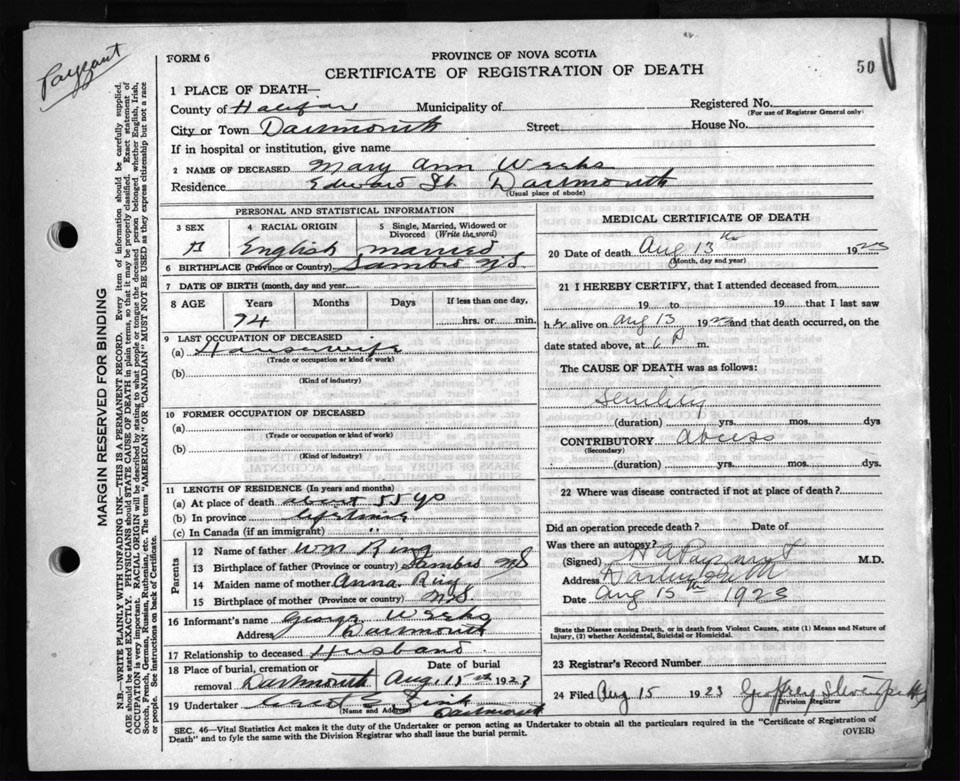 Payzant
FORM 6
PROVINCE OF NOVA SCOTIA
CERTIFICATE OF REGISTRATION OF DEATH
50
1 PLACE OF DEATH—
County of Halifax Municipality of
Registered No.
(For use of Registrar General only)
City or Town Dartmouth Street House No.
If in hospital or institution, give name
2 NAME OF DECEASED Mary Ann Weeks
Residence Edward St Dartmouth
(Usual place of abode)
PERSONAL AND STATISTICAL INFORMATION
3 SEX 4 RACIAL ORIGIN 5 Single, Married, Widowed or Divorced (Write the word)
F English married
6 BIRTHPLACE (Province or Country) Sambro NS
7 DATE OF BIRTH (month, day and year)
8 AGE Years Months Days If less than one day,
74 hrs. or min.
9 LAST OCCUPATION OF DECEASED
(a) Housewife
(Trade or occupation or kind of work)
(b)
(Kind of industry)
10 FORMER OCCUPATION OF DECEASED
(a)
(Trade or occupation or kind of work)
(b)
(Kind of industry)
11 LENGTH OF RESIDENCE (In years and months)
(a) At place of death about 55 yrs
(b) In province lifetime
(c) In Canada (if an immigrant)
Parents
12 Name of father Wm Ring
13 Birthplace of father (Province or country) Sambro NS
14 Maiden name of mother Anna Ring
15 Birthplace of mother (Province or country) NS
16 Informant's name George Weeks
Address Dartmouth
17 Relationship to deceased Husband
18 Place of burial, cremation or removal Dartmouth Date of burial Aug. 15th 1923
19 Undertaker Zink
(Name and Address) Dartmouth
MEDICAL CERTIFICATE OF DEATH
20 Date of death Aug 13th 1923
(Month, day and year)
21 I HEREBY CERTIFY, that I attended deceased from
19 to 19 that I last saw
her alive on Aug 13 1923 and that death occurred, on the
date stated above, at 6 P m.
The CAUSE OF DEATH was as follows:
Senility
(duration) yrs. mos. dys
CONTRIBUTORY
(Secondary)
(duration) yrs. mos. dys.
22 Where was disease contracted if not at place of death?
Did an operation precede death? Date of
Was there an autopsy?
(Signed) H A Payzant M.D.
Address Dartmouth
Date Aug 15th 1923
State the Disease causing Death, or in death from Violent Causes, state (1) Means and Nature of
Injury, (2) whether Accidental, Suicidal or Homicidal.
23 Registrar's Record Number
24 Filed Aug 15 1923 Geoffrey
Division Registrar
SEC. 46—Vital Statistics Act makes it the duty of the Undertaker or person acting as Undertaker to obtain all the particulars required in the "Certificate of Registration of
Death" and to fyle the same with the Division Registrar who shall issue the burial permit.
(OVER)
MARGIN RESERVED FOR BINDING
N.B.—WRITE PLAINLY WITH UNFADING INK—THIS IS A PERMANENT RECORD. Every item of information should be carefully supplied.
AGE should be stated EXACTLY. PHYSICIANS should STATE CAUSE OF DEATH in plain terms, so that it may be properly classified. Exact statement of
OCCUPATION is very important. RACIAL ORIGIN will be described by stating to what people or tongue the deceased person belonged whether English, Irish,
Scotch, French, German, Russian, Ruthenian, etc. The terms "AMERICAN" OR "CANADIAN" MUST NOT BE USED as they express citizenship but not a race
or people. See instructions on back of Certificate.